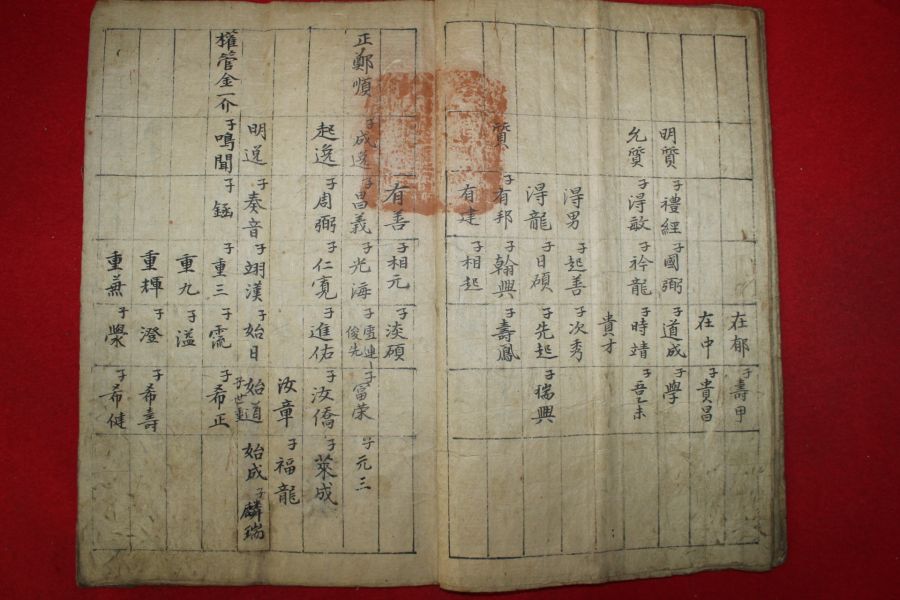 在郁 子壽甲
在中 子貴昌
明質 子禮經 子國弼 子道成 子學
允質 子淂敏 子衿龍 子時靖 子吾乙未
貴才
淂男 子起善 子次秀
淂龍 子日碩 子先起 子瑞興
質 子有邦 子翰興 子壽鳳
有建 子相起
有善 子相元 子淡碩
正鄭順 子成逸 子昌義 子光海 子 俊先 子富荣 子元三
起逸 子周弼 子仁寬 子進佑 子汝僑 子萊成
汝章 子福龍
明逸 子奏音 子翊漢 子始日 始道 子世重 始成 子麟瑞
權管金一介 子鳴聞 子 子重三 子霈 子希正
重九 子溢
重輝 子澄 子希壽
重燕 子 子希健